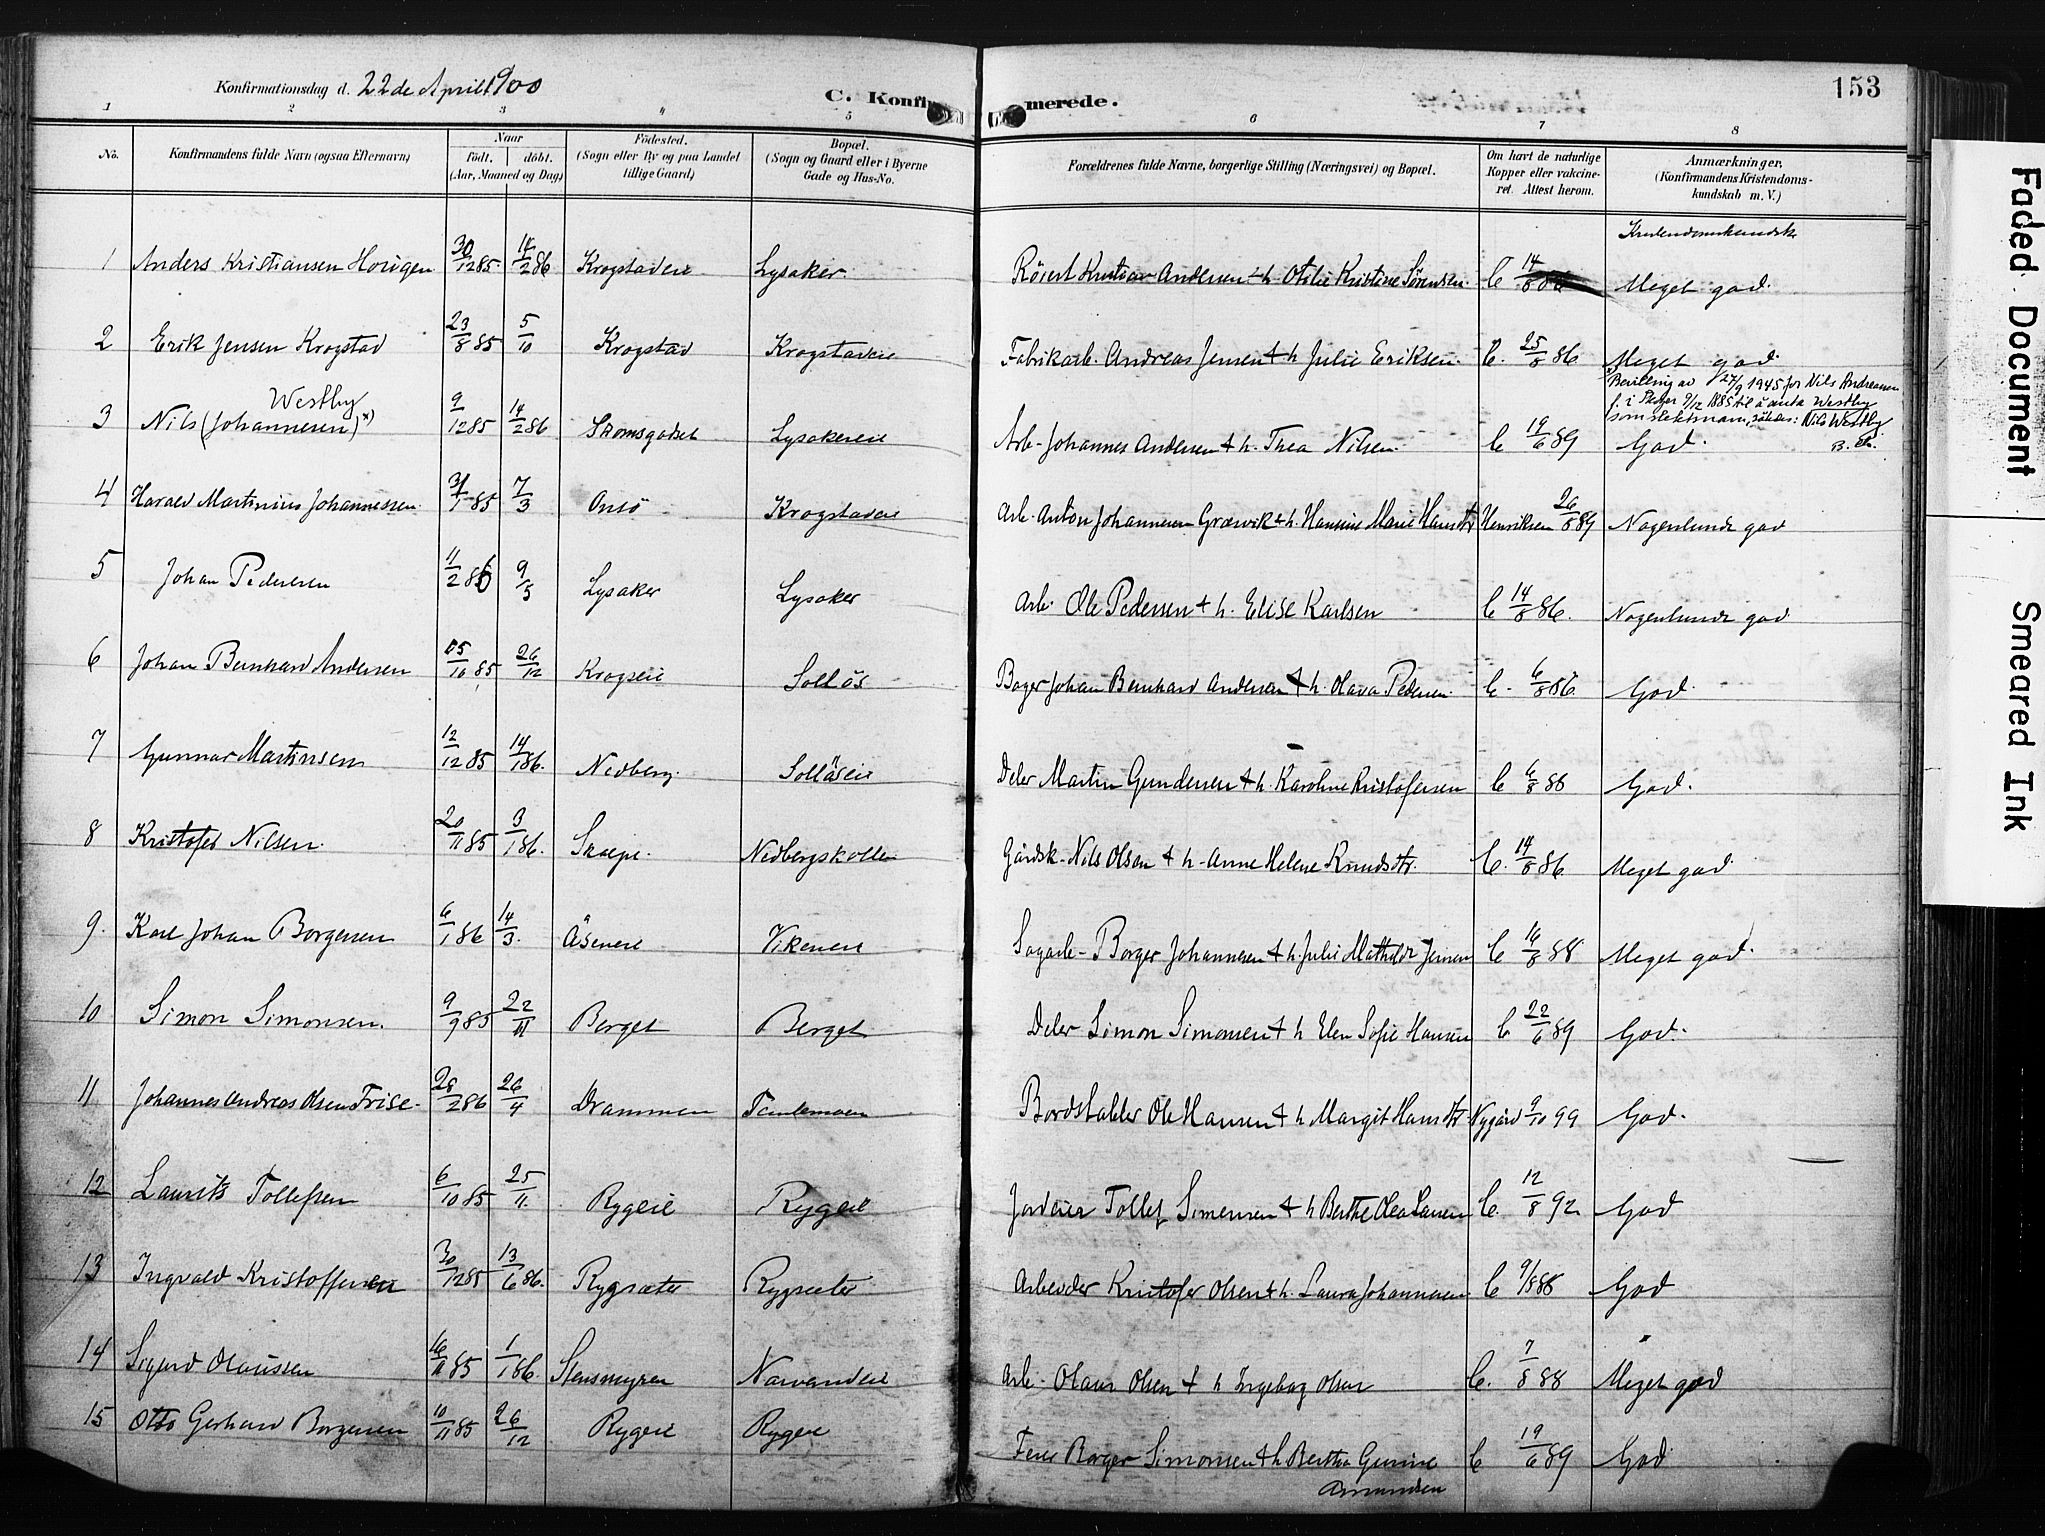 Konfirmationsdag d. 22de April 1900
C. Konfirmerede.
153
1 2 3 4 5 6 7 8
No.
Konfirmandens fulde Navn (ogsaa Efternavn)
Naar
födt. döbt.
(Aar, Maaned og Dag)
Födested.
(Sogn eller By og paa Landet
tillige Gaard)
Bopæl.
(Sogn og Gaard eller i Byerne
Gade og Hus-No.
Forældrenes fulde Navne, borgerlige Stilling (Næringsvei) og Bopæl.
Om havt de naturlige
Kopper eller vakcine-
ret. Attest herom.
Anmærkninger.
(Konfirmandens Kristendoms-
kundskab m. V.)
Kristendomskundsk
1 Anders Kristiansen Hougen 30/12 85 14/2 86 Krogstadeie Lysaker Kristian Andersen + h. Otilie Kristine Sörensen C 14/8 Meget god.
2 Erik Jensen Krogstad 23/8 85 5/10 Krogstad Krogstadeie Fabrikarb. Andreas Jensen + h Julie Eriksen C. 25/8 86 Meget god.
Bevilling av 27/9 1945 for Nils Andreassen
f. i 9/12 1885 til å anta Westby
som slektsnavn, således: Nils Westby
3 Westby
Nils (Johannesen) x) 9/12 85 14/2 86 Skomsgodset Lysakereie Arb. Johannes Andersen + h. Thea Nilsen. C 19/6 89 God.
4 Harald Martinius Johannessen 31/1 85 7/3 Onsö Krogstadeie Arb. Anton Johannesen Græsvik + h. Hansine Marie Hansdtr Henriksen 26/8 89 Nogenlunde god
5 Johan Pedersen 11/2 86 9/5 Lysaker Lysaker Arb. Ole Pedersen + h. Elise Karlsen C 14/8 86. Nogenlunde god
6 Johan Bernhard Andersen 85 26/12 Krogseie Solløs Bager Johan Bernhard Andersen + h. Olava Pedersen C. 6/8 86 God.
7 Gunnar Martinsen 12/12 85 14/1 86. Nedberg. Solløseie Deler Martin Gundersen + h. Karoline Kristofersen C 6/8 86 God.
8 Kristofer Nilsen. 20/11 85 3/1 86. Nedbergskollen Gårdsk. Nils Olsen + h. Anne Helene Knudsdtr. C. 14/8 86 Meget god
9. Karl Johan Borgersen 6/1 86 14/3. Åseneie Vikeneie Sagarb. Borger Johannesen + h. Julie Mathilde Jensen C 16/8 88 Meget god.
10 Simon Simonsen. 9/9 85 22/11 Berget Berget Deler Simon Simonsen + h Elen Sofie Hansen C 22/6 89 God.
11 Johannes Andreas Olsen Frise. 28/2 86 26/4 Drammen Tantemoen Bordstabler Ole Hansen + h Margit Hansdtr Nygård 9/10 99 God.
12 Laurits Tollefsen 6/10 85 25/11. Rygeie Rygeie Jordeier Tollef Simensen + h Berthe Olea Larsen C. 12/8 92 God
13 Ingvald Kristoffersen 30/12 85 13/6 86. Rygsæter Rygsæter Arbeider Kristofer Olsen + h. Laura Johannesen C 9/8 86 God
14 Sigurd Olaussen 16/11 85 1/1 86. Stensmyren Narvendeie Arb. Olaus Olsen + h Ingeborg Olsen C. 7/8 88 Meget god
15 Otto Gerhard Borgersen 10/11 85 26/12 Rygeie Rygeie Borger Simonsen + h Bertha Gurine C 19/6 89 God
Amundsen
Faded Document
Smeared Ink